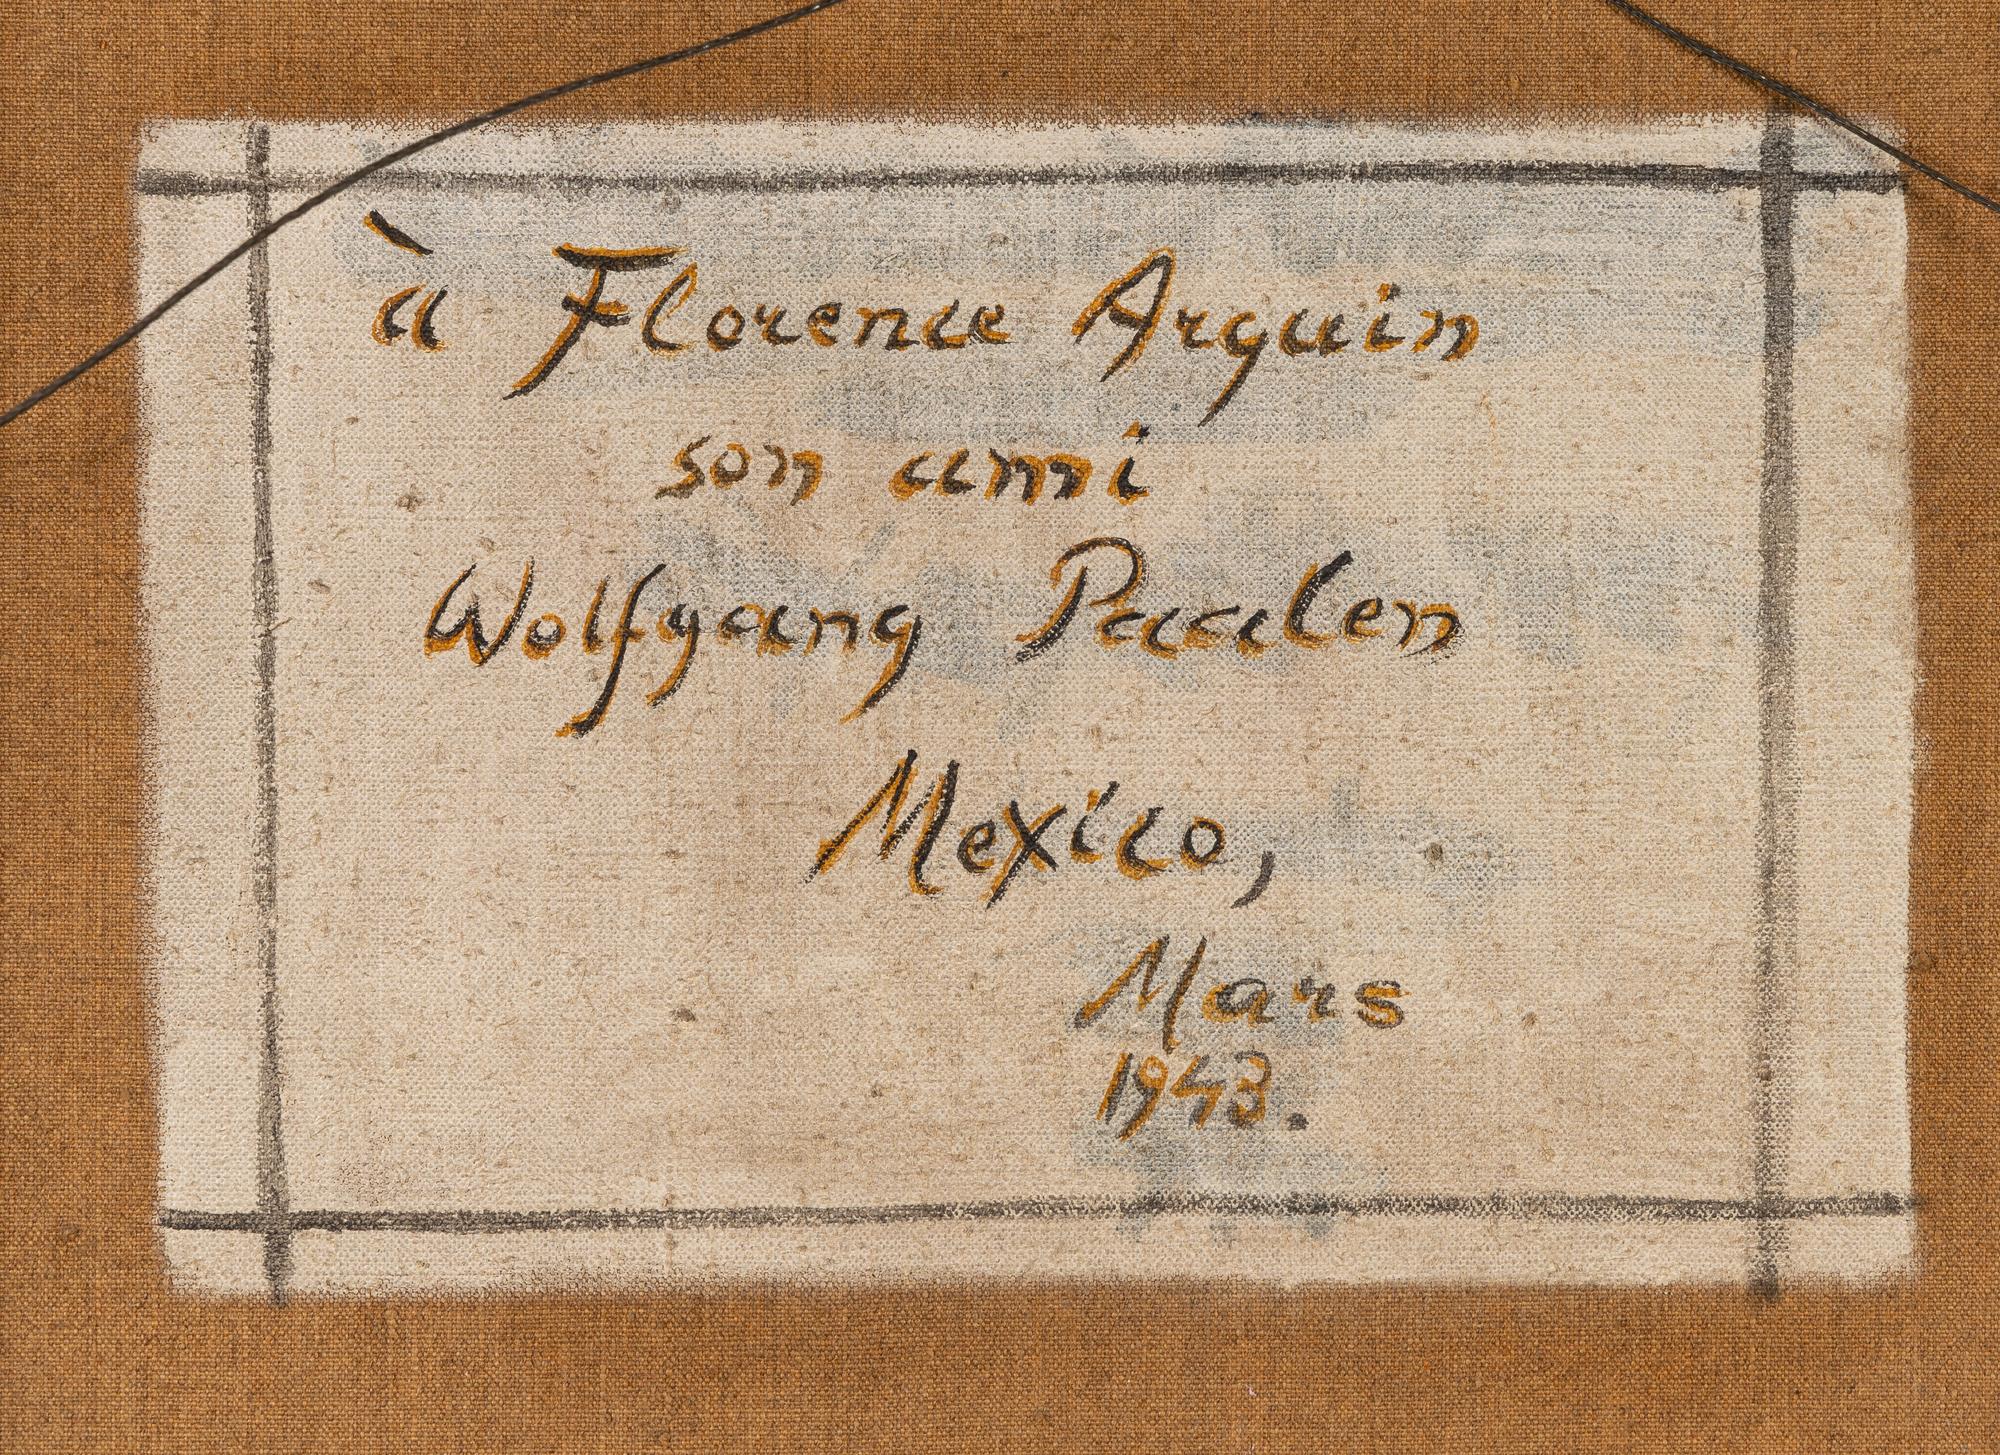 à Florence Arquin
son ami
Wolfgang Paalen
Mexico,
Mars
1943.